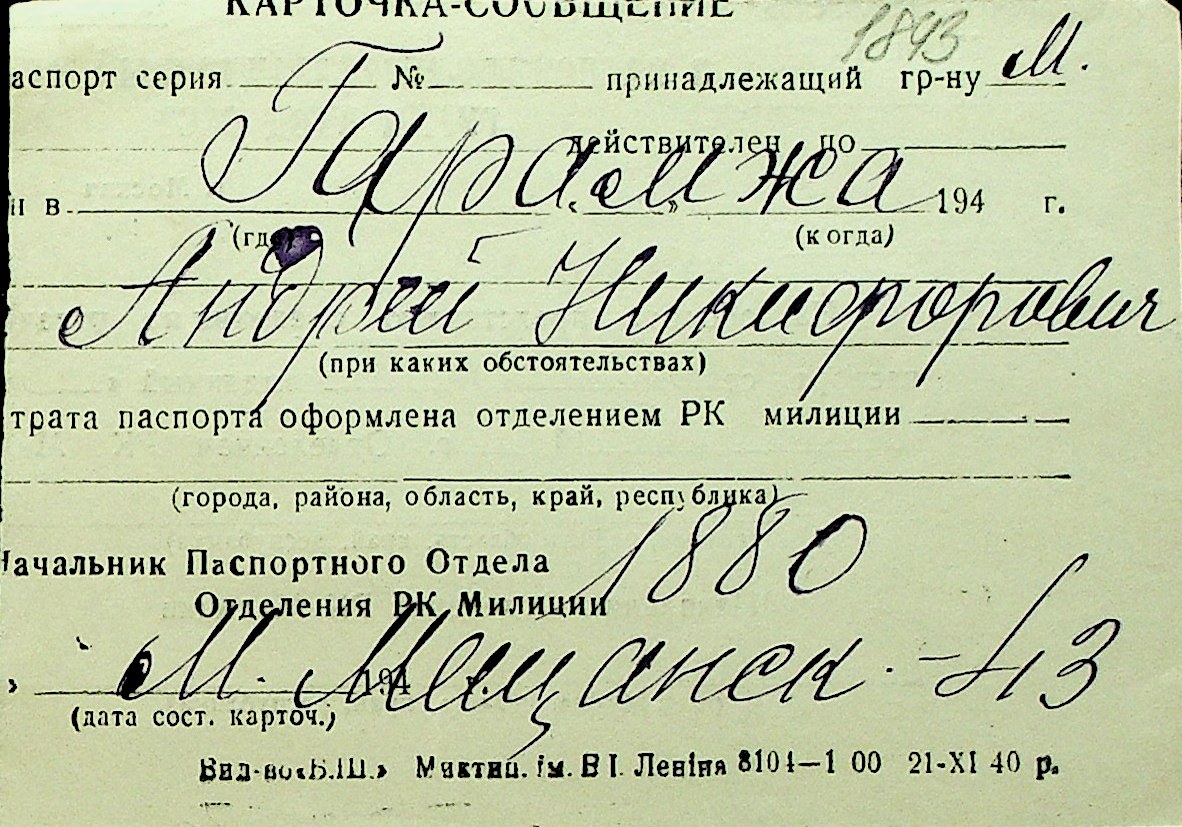 КАРТОЧКА-СООБЩЕНИЕ
1893
аспорт серия № принадлежащий гр-ну М.
действителен по
Гарамжа
и в « » 194 г.
(где) (когда)
Андрей Никифорович
(при каких обстоятельствах)
трата паспорта оформлена отделением РК милиции
(города, района, область, край, республика)
1880
Начальник Паспортного Отдела
Отделения РК Милиции
М. Мещанск. - 43
» 194 г.
(дата сост. карточ.)
Вид-во «Б.Ш.» ім. В І. Леніна 8104—1 00 21-XI 40 р.